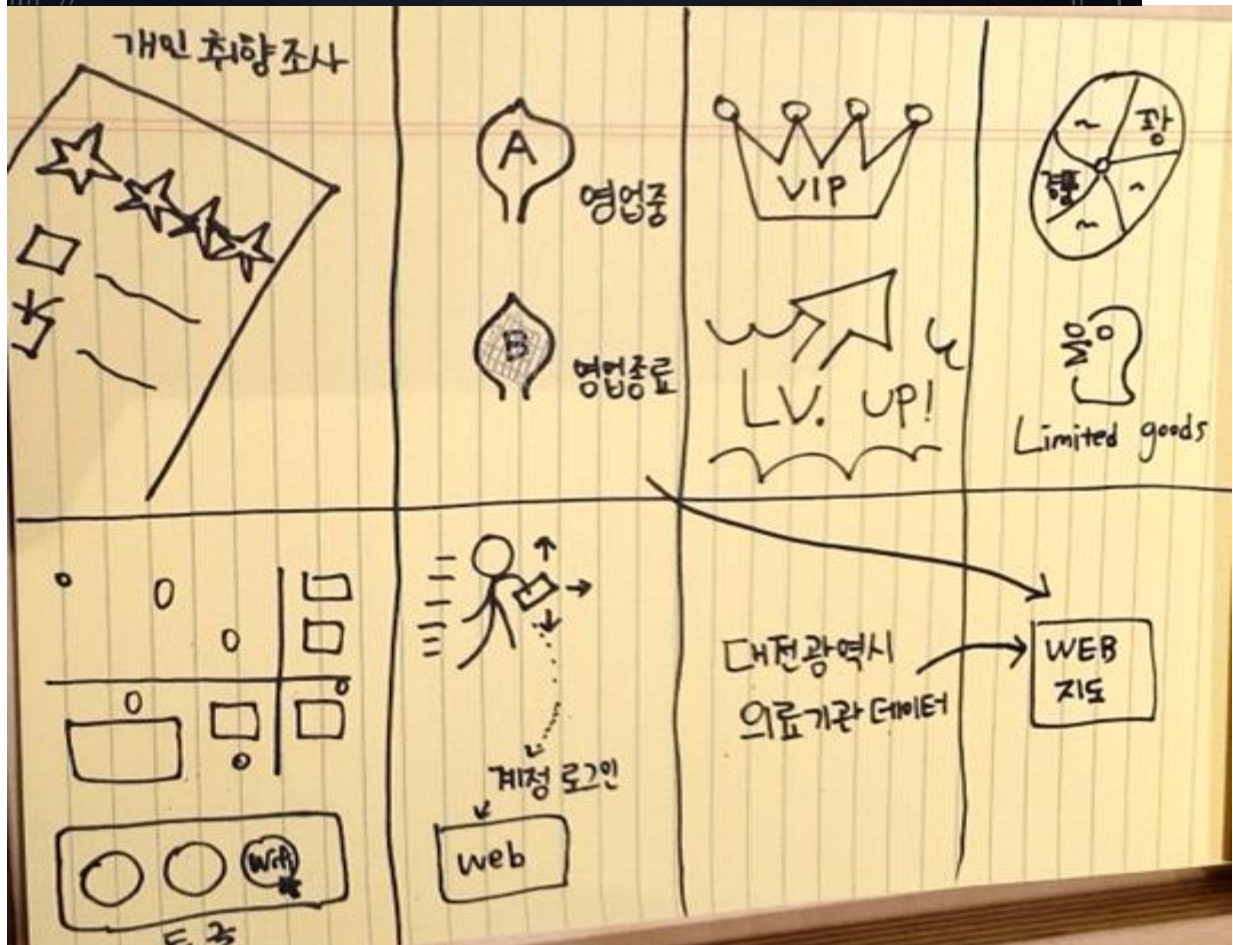 개인 취향조사
A
영업중
B
영업종료
VIP
LV. UP!
꽝
경품
Limited goods
계정 로그인
web
대전광역시
의료기관 데이터
WEB
지도
Wifi